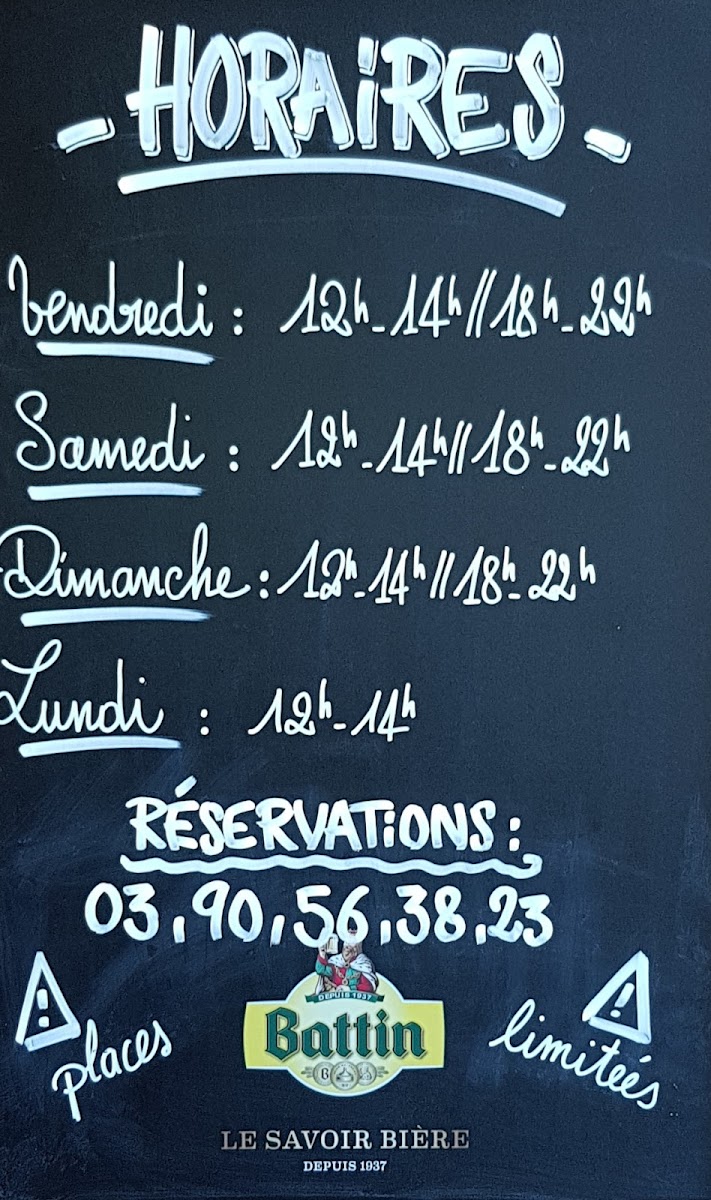 - HORAiRES -
Vendredi : 12h-14h//18h-22h
Samedi : 12h-14h//18h-22h
Dimanche : 12h-14h//18h-22h
Lundi : 12h-14h
RÉSERVATiONS :
03,90,56,38,23
DEPUIS 1937
Battin
places
limiteés
LE SAVOIR BIÈRE
DEPUIS 1937